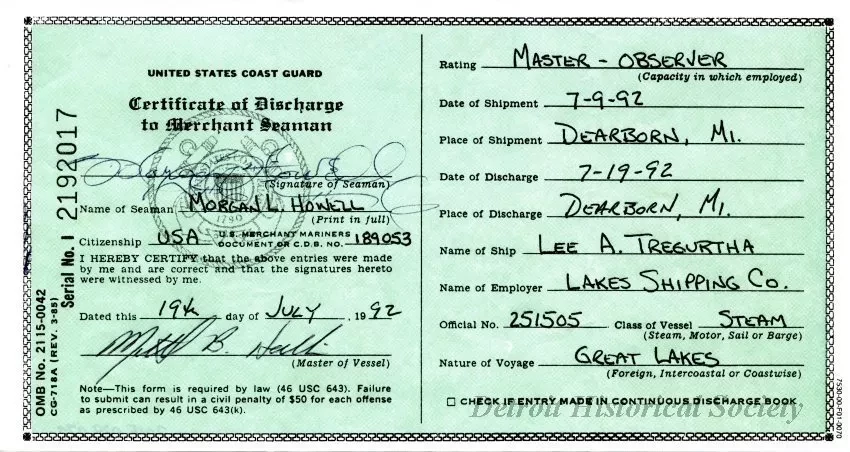 UNITED STATES COAST GUARD
Certificate of Discharge
to Merchant Seaman
(Signature of Seaman)
Name of Seaman MORGAN L. HOWELL
(Print in full)
Citizenship USA U.S. MERCHANT MARINERS DOCUMENT OR C.D.B. NO. 189053
I HEREBY CERTIFY that the above entries were made
by me and are correct and that the signatures hereto
were witnessed by me.
Dated this 19th day of JULY, 1992
(Master of Vessel)
Note—This form is required by law (46 USC 643). Failure
to submit can result in a civil penalty of $50 for each offense
as prescribed by 46 USC 643(k).
OMB No. 2115-0042
CG-718A (REV. 3-85)
Serial No. I 2192017
Rating MASTER - OBSERVER
(Capacity in which employed)
Date of Shipment 7-9-92
Place of Shipment DEARBORN, MI.
Date of Discharge 7-19-92
Place of Discharge DEARBORN, MI.
Name of Ship LEE A. TREGURTHA
Name of Employer LAKES SHIPPING CO.
Official No. 251505 Class of Vessel STEAM
(Steam, Motor, Sail or Barge)
Nature of Voyage GREAT LAKES
(Foreign, Intercoastal or Coastwise)
☐ CHECK IF ENTRY MADE IN CONTINUOUS DISCHARGE BOOK
Detroit Historical Society
7530-00-F01-3070